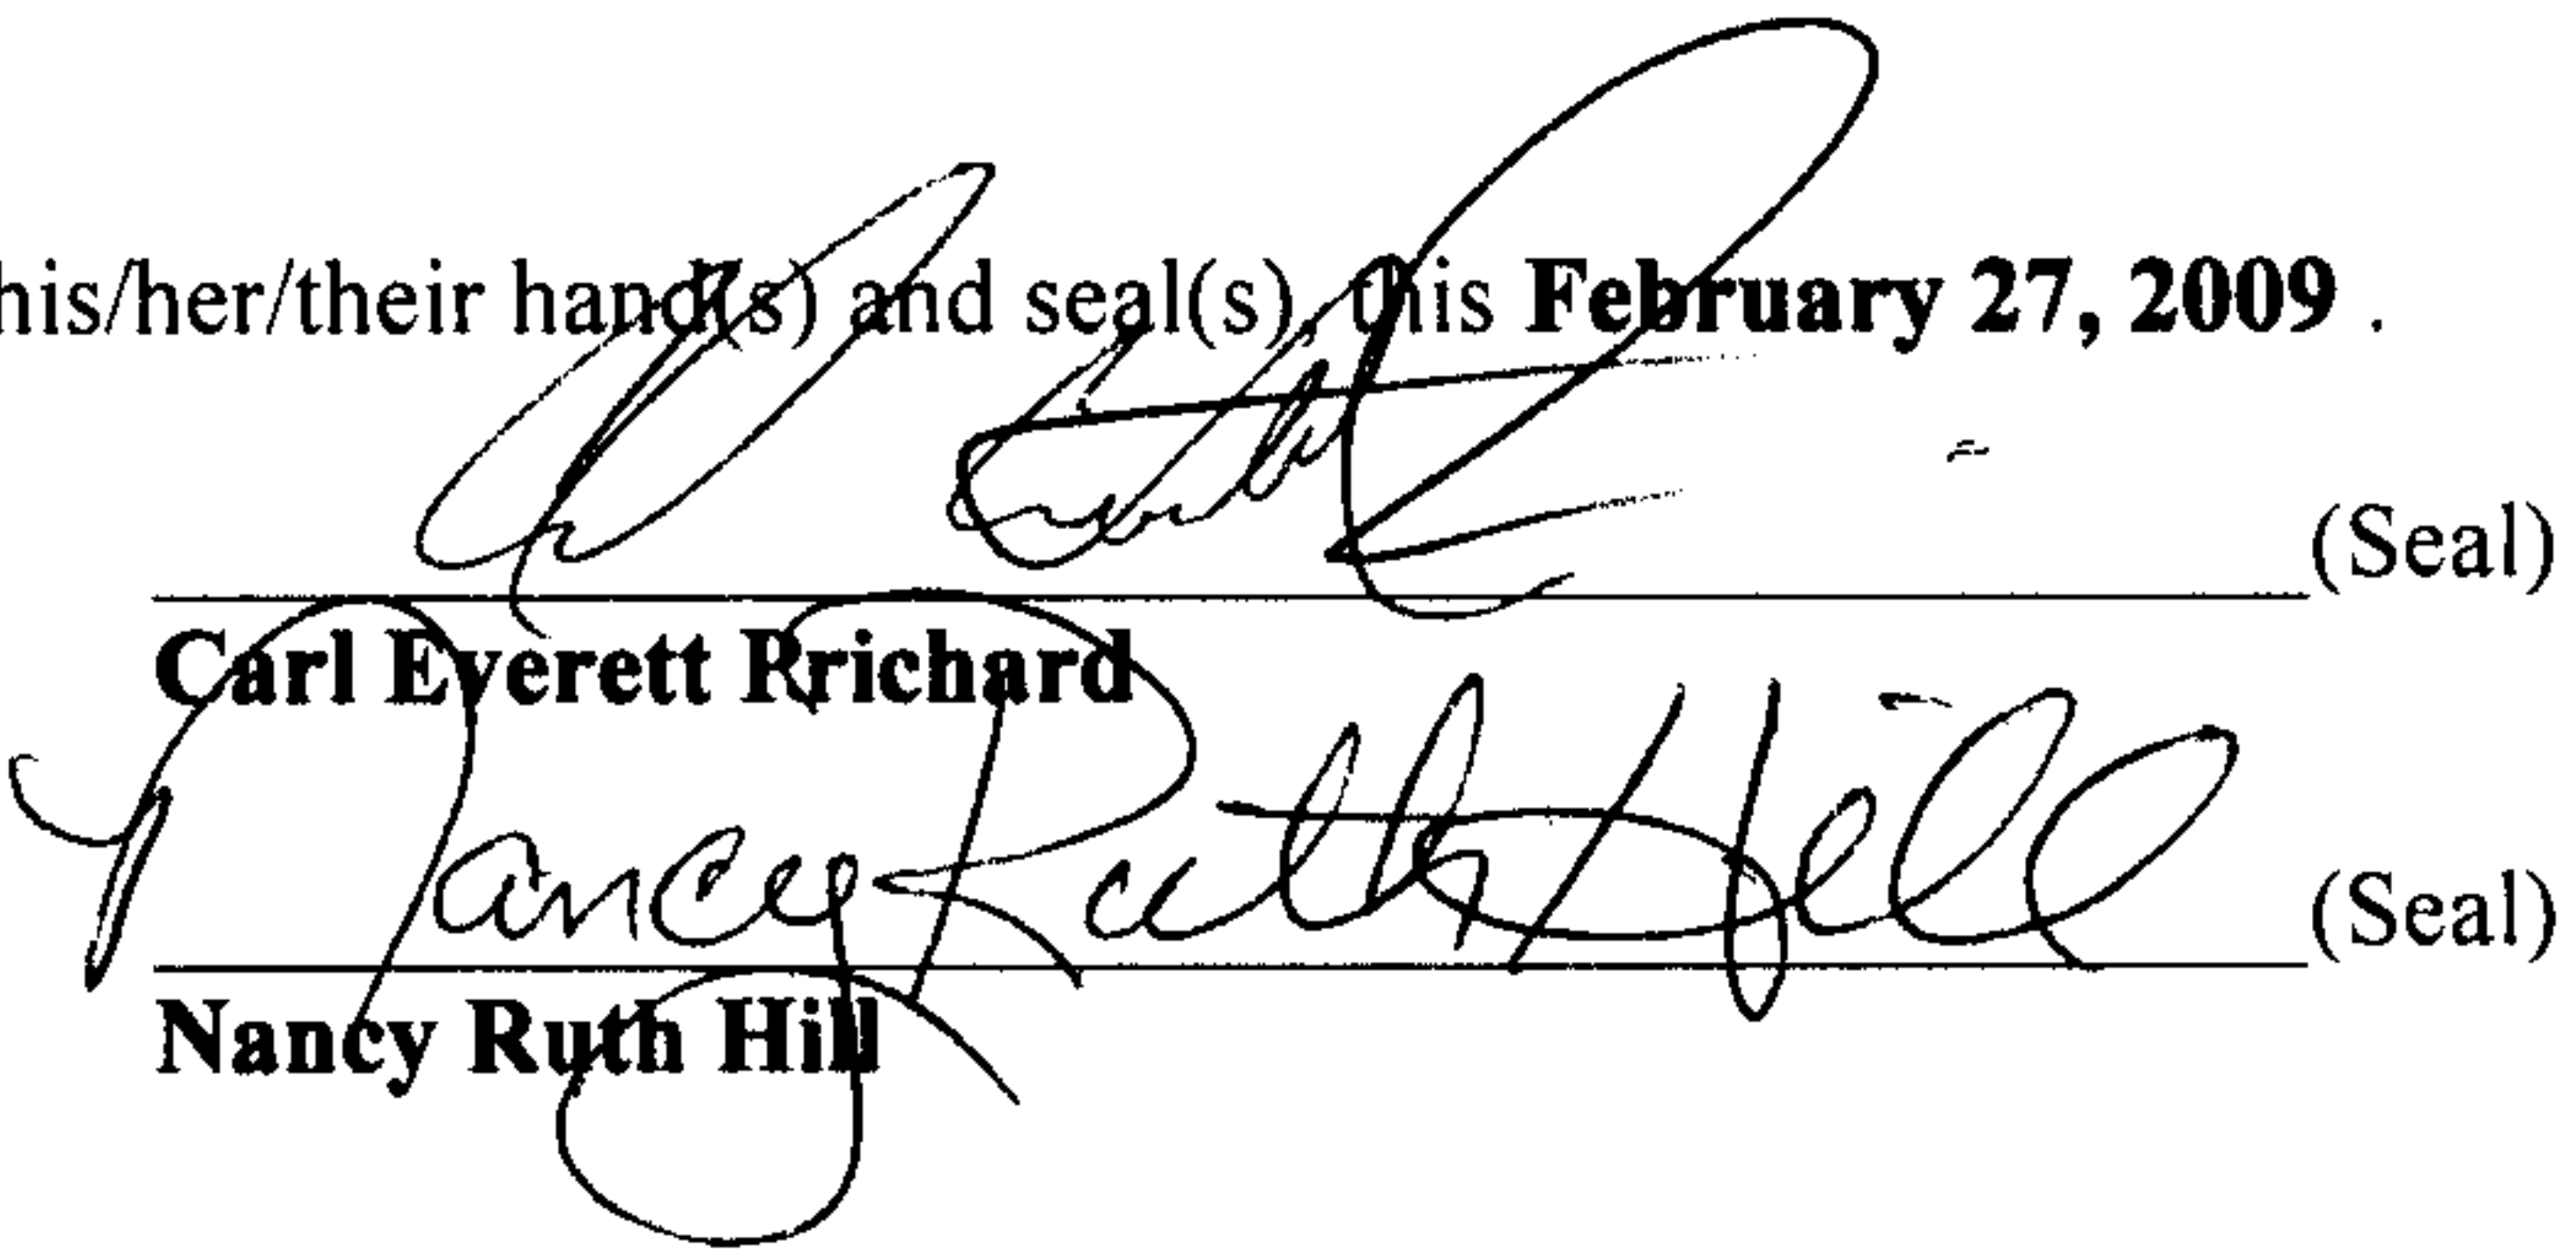 his/her/their hand(s) and seal(s), this February 27, 2009 .
(Seal)
Carl Everett Prichard
Nancy Ruth Hill (Seal)
Nancy Ruth Hill